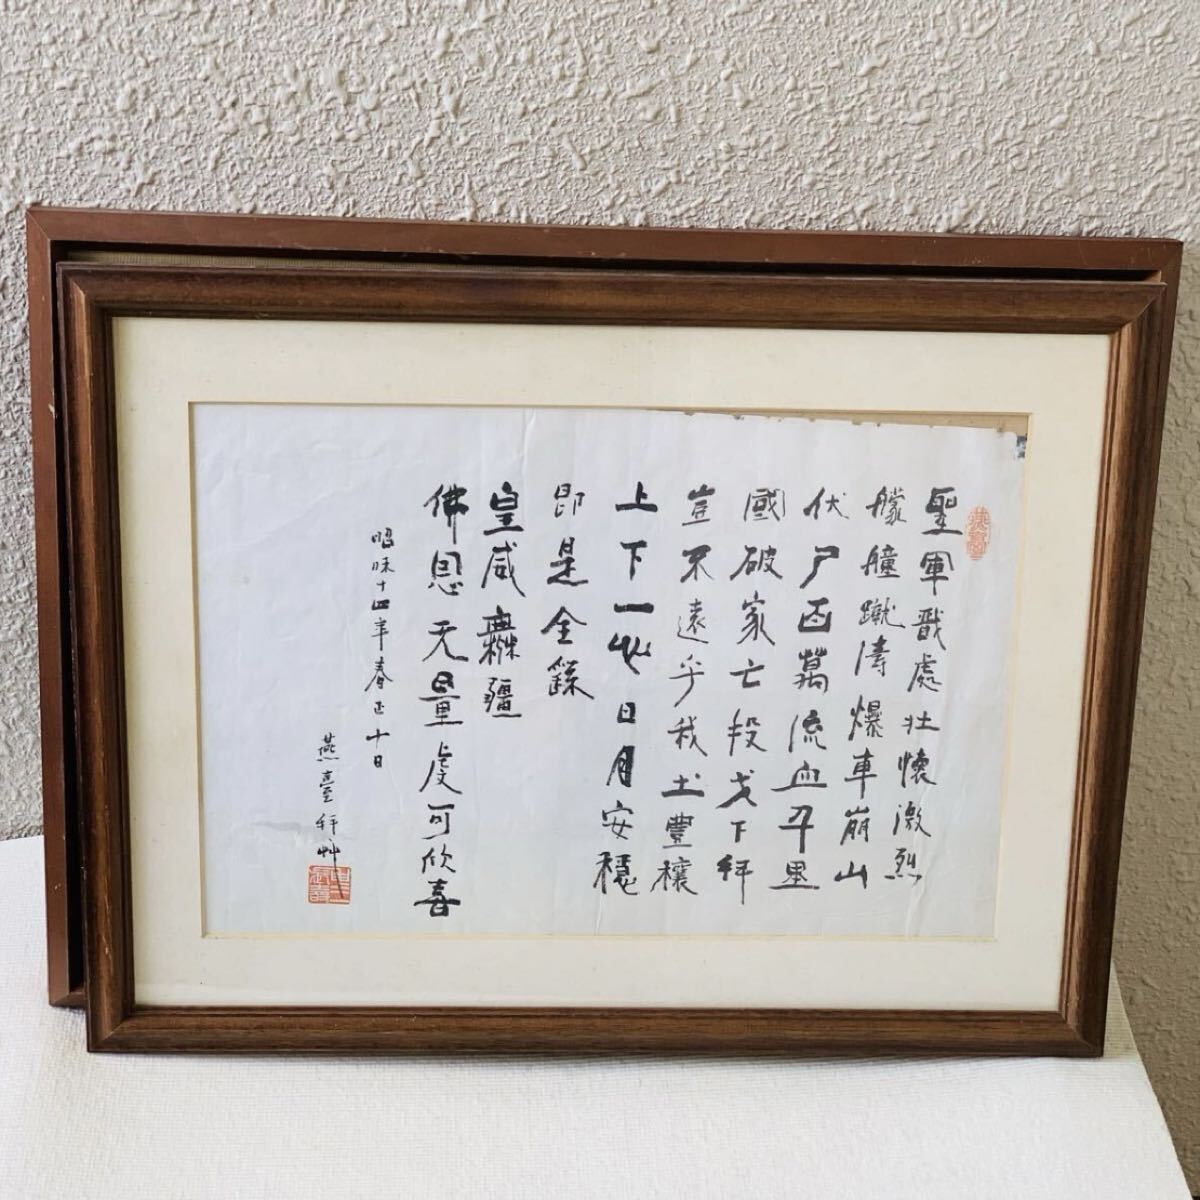 聖軍戢處壮懐激烈
艨艟蹴濤爆車崩山
伏尸百萬流血千里
國破家亡投戈下拜
豈不遠乎我土豐穰
上下一心日月安穩
即是全
皇威無疆
佛恩无量度可欣喜
昭昧十四年春正十日
燕臺拜艸
燕臺